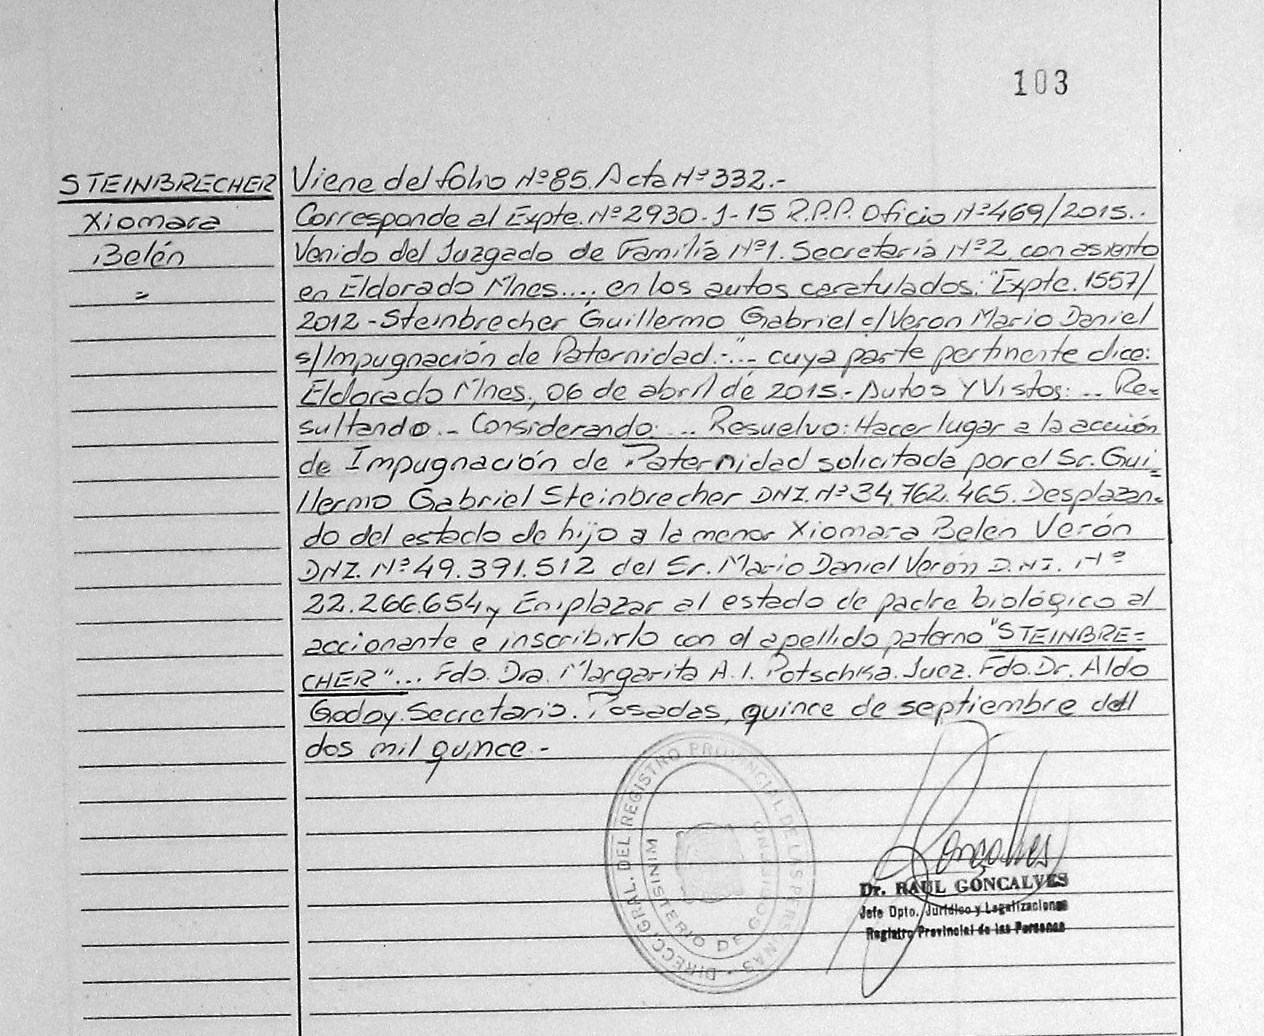 103
STEINBRECHER
Xiomara
Belén
Viene del folio Nº85. Acta Nº332.-
Corresponde al Expte. Nº2930-J-15 R.P.P. Oficio Nº469/2015..
Venido del Juzgado de Familia Nº1. Secretaria Nº2, con asiento
en Eldorado Mnes...., en los autos caratulados: "Expte. 1557/
2012-Steinbrecher Guillermo Gabriel c/Veron Mario Daniel
s/Impugnación de Paternidad.-"... cuya parte pertinente dice:
Eldorado Mnes, 06 de abril de 2015.- Autos Y Vistos: ... Re-
sultando.. Considerando: ... Resuelvo: Hacer lugar a la acción
de Impugnación de Paternidad solicitada por el Sr. Gui-
llermo Gabriel Steinbrecher DNI. Nº34.762.465. Desplazan-
do del estado de hijo a la menor Xiomara Belen Verón
DNI. Nº49.391.512 del Sr. Mario Daniel Verón D.NI. Nº
22.266.654, y Emplazar al estado de padre biológico al
accionante e inscribirlo con el apellido paterno "STEINBRE-
CHER"... Fdo. Dra. Margarita A. I. Potschka. Juez. Fdo. Dr. Aldo
Godoy. Secretario. Posadas, quince de septiembre del
dos mil quince.-
DIRECC. GRAL. DEL REGISTRO PROVINCIAL DE LAS PERSONAS
MINISTERIO DE GOBIERNO
Goncalves
Dr. RAUL GONCALVES
Jefe Dpto. Jurídico y Legalizaciones
Registro Provincial de las Personas